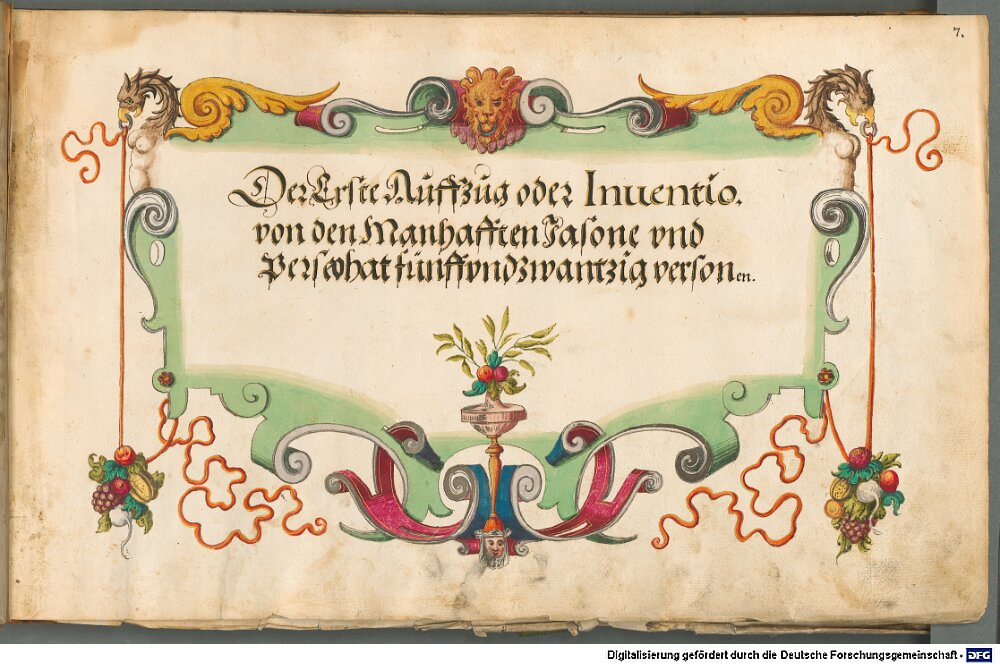 7.
Der Erste Auffzug oder Inuentio.
von den Manhafften Jasone vnd
Perseo hat fünffvndzwantzig personen.
Digitalisierung gefördert durch die Deutsche Forschungsgemeinschaft - DFG